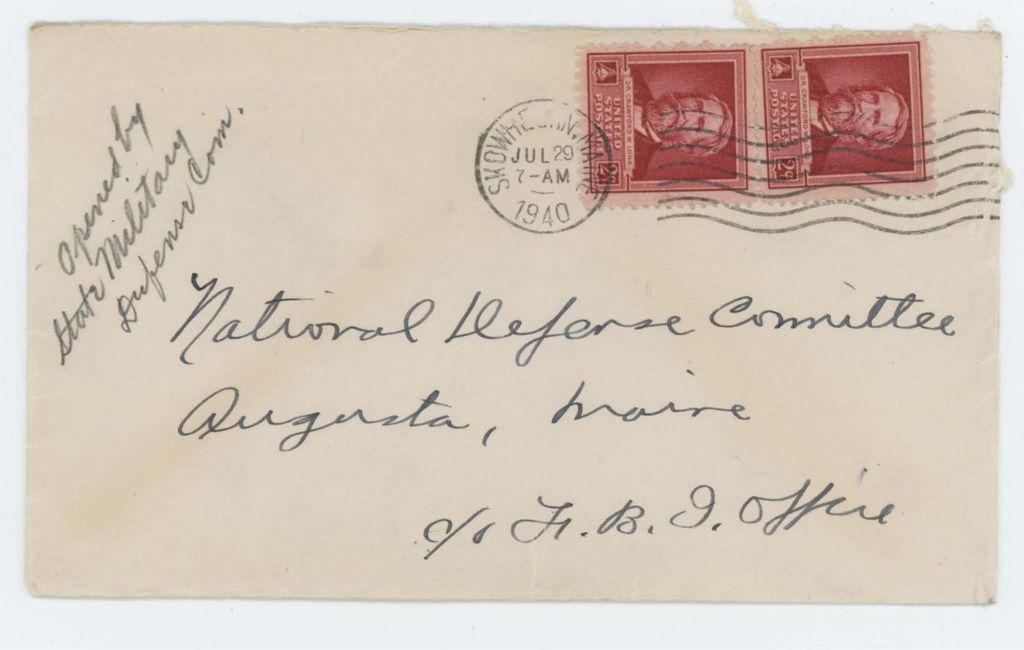 Opened by
State Military
Defense Com.
SKOWHEGAN, MAINE
JUL 29
7-AM
1940
DR. CRAWFORD W. LONG
UNITED
STATES
POSTAGE
2¢
DR. CRAWFORD W. LONG
UNITED
STATES
POSTAGE
2¢
National Defense Committee
Augusta, Maine
c/o F. B. I. Office